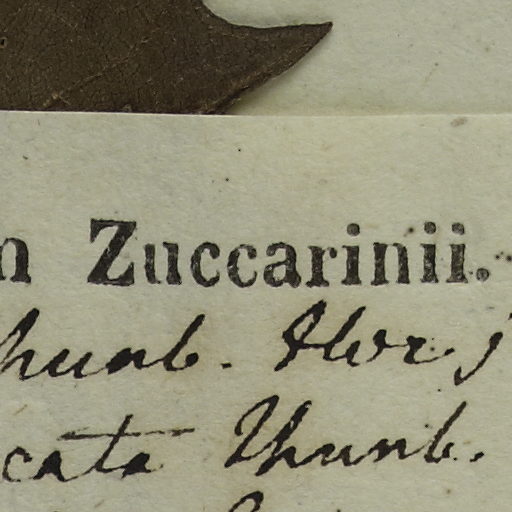 n Zuccarinii.
hunb. flor. j
cata Thunb.